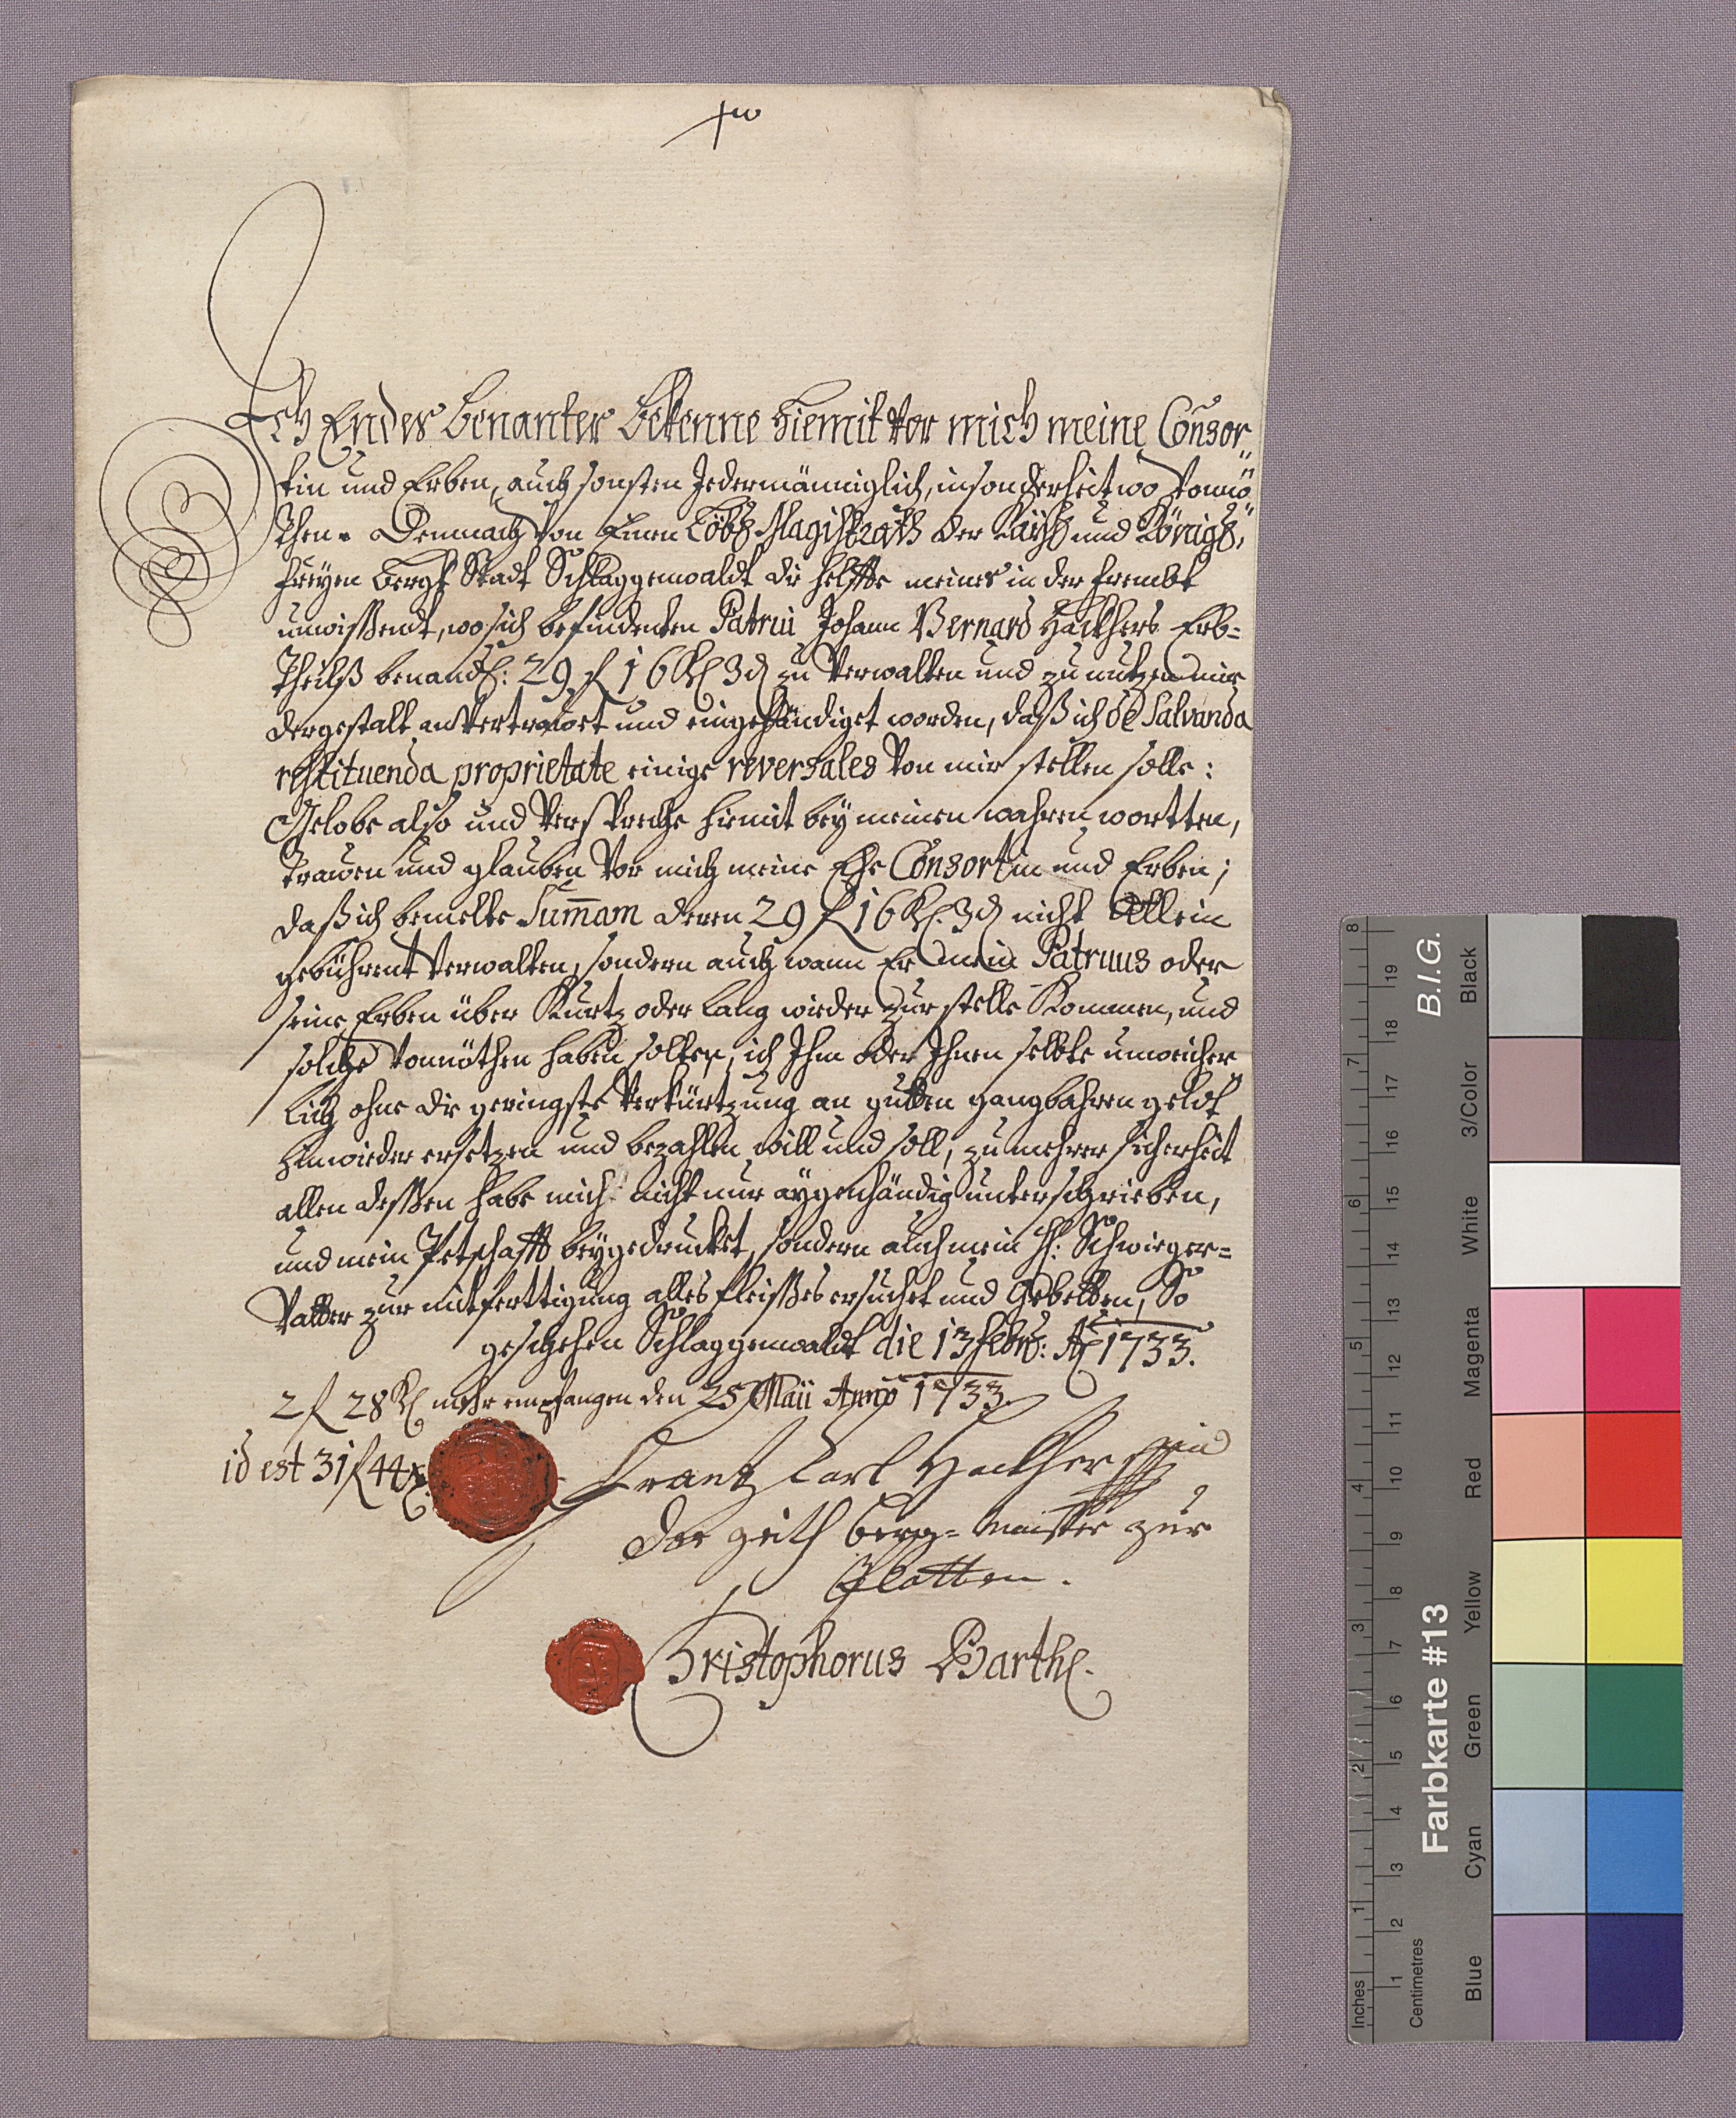 Ich Endes benanter bekenne hiemit vor mich meine Consor„
tin und Erben, auch sonsten Jedermänniglich, insonderheit wo vonnö„
then. Demnach von Einen Löbl Magistrath der Kayßl und Königl„
freyen Bergk Stadt Schlaggenwaldt die helffte meines in der frembt
unwißendt, wo sich befindenten Patrui Johann Bernard Häckhers Erb=
Theilß benandtl: 29 f 16 Kl 3 d zu verwalten und zu nutzen mir
dergestalt anvertrauet und eingehändiget worden, daß ich de Salvanda
restituenda proprietate einige reversales von mir stellen solle:
Gelobe also und verspreche hiemit bey meinen wahren wortten,
trauen und glauben vor mich meine Ehe Consortin und Erben;
daß ich bemelte Sum̄am deren 29 f 16 Kl. 3 d nicht Allein
gebührent verwalten, sondern auch wann Er mein Patruus oder
seine Erben über Kurtz oder lang wieder zur stelle Kommen, und
solche vonnöthen haben solten, ich Ihm oder Ihnen selbte unweicher„
lich ohne die geringste verkürtzung an gutten gangbahren geldt
hinwieder ersetzen und bezahlen will und soll, zu mehrer sicherheit
allen deßen habe mich nicht nur aygenhändig unterschrieben,
und mein Petschafft beygedrucket, sondern auch mein H: Schwieger=
Vatter zur mitferttigung alles fleißes ersuchet und Gebetten, So
geschehen Schlaggenwaldt die 13 Febr: Ao 1733.
2 f 28 Kl mehr empfangen den 25 Maii Anno 1733.
id est 31 f 44 x.
Frantz Carl Hackher mp
Der Zeith Berg=Meister zur
Platten.
Christophorus Barthl.